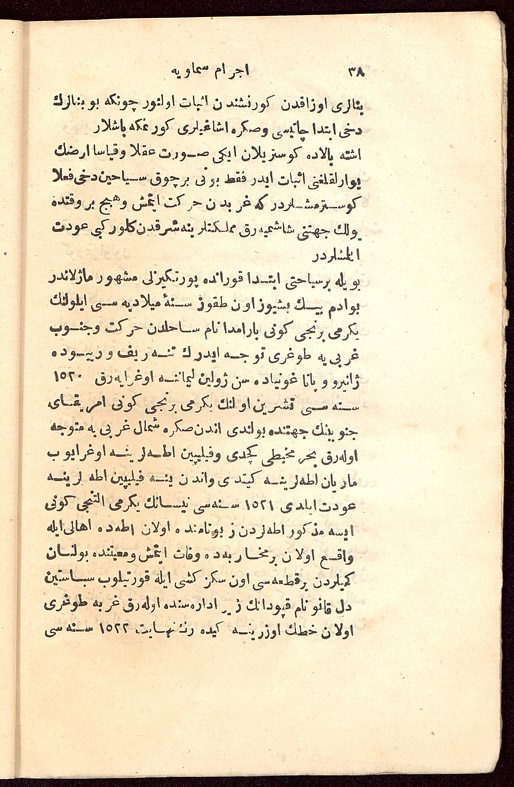 ٣٨ اجرام سماویه
بنالری اوزاقدن کورنشندن اثبات اولنور چونکه بو بنالرك
دخی ابتدا چاتیسی وصکره اشاغیلری کورنمکه باشلار
اشته بالاده کوستریلان ایکی صورت عقلا وقیاسا ارضك
یوارلقلغنی اثبات ایدر فقط بونی برچوق سیاحین دخی فعلا
کوسترمشلردر که غربدن حرکت ایتمش وهیچ بر وقتده
یولك جهتنی شاشمیه رق مملکتلرینه شرقدن کلور کبی عودت
ایتمشلردر
بویله برسیاحتی ابتدا قورانده پورتکیزلی مشهور ماژلاندر
بوادم بیك بشیوز اون طقوز سنهٔ میلادیه سی ایلولنك
یکرمی برنجی کونی بارامدا نام ساحلدن حرکت وجنوب
غربی یه طوغری توجه ایدرك تنه ریف و رییوده
ژانیرو و پاتاغونیاده سن ژولین لیماننه اوغرایه رق ١٥٢٠
سنه سی تشرین اولنك یکرمی برنجی کونی امریقای
جنوبینك جهتنده بولندی اندن صکره شمال غربی یه متوجه
اوله رق بحر محیطی کچدی وفیلیپین اطه لرینه اوغرایوب
ماریان اطه لرینه کیتدی واندن ینه فیلیپین اطه لرینه
عودت ایلدی ١٥٢١ سنه سی نیسانك یکرمی التنجی کونی
ایسه مذکور اطه لردن زبونامنده اولان اطه ده اهالی ایله
واقع اولان برمحاربه ده وفات ایتمش ومعیتنده بولنان
کمیلردن برقطعه سی اون سکز کشی ایله قورتیلوب سباستین
دل قانو نام قپودانك زیر اداره سنده اوله رق غربه طوغری
اولان خطك اوزرینه کیده رك نهایت ١٥٢٢ سنه سی